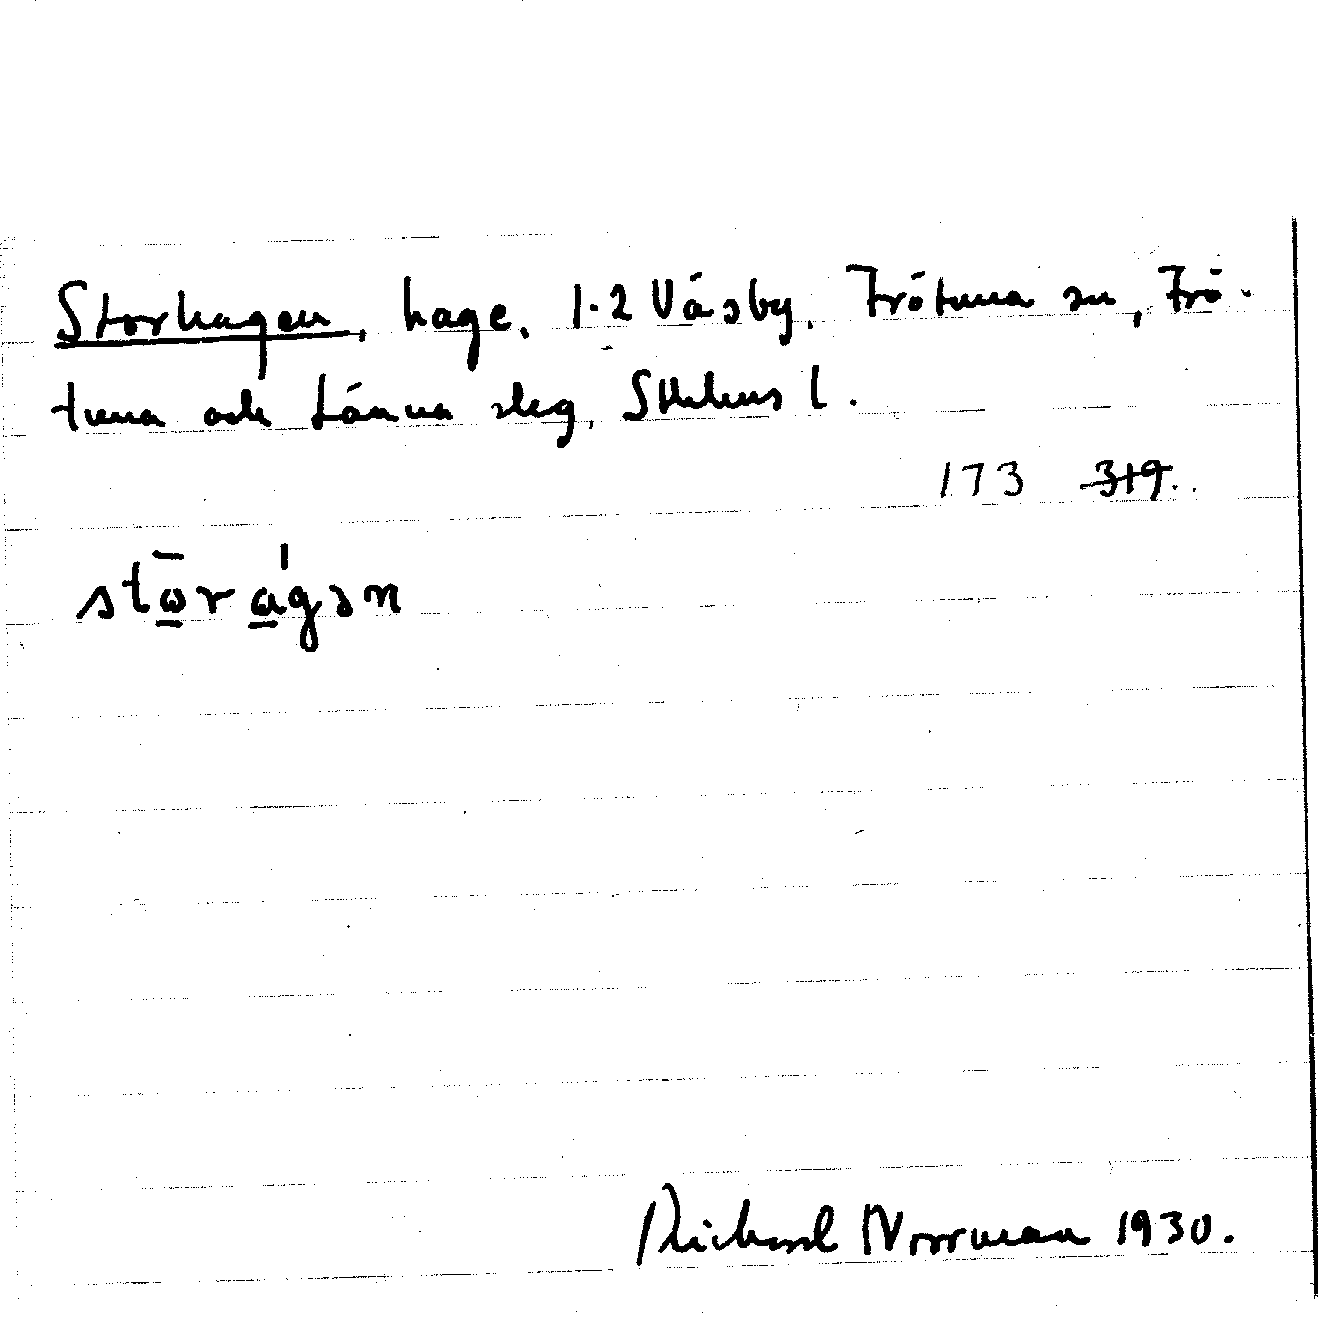 Storhagen, hage, 1-2 Väsby, Frötuna sn, Frö-
tuna och Länna slg, Sthlms l.
173 319.
stōrágən
Richard Norrman 1930.